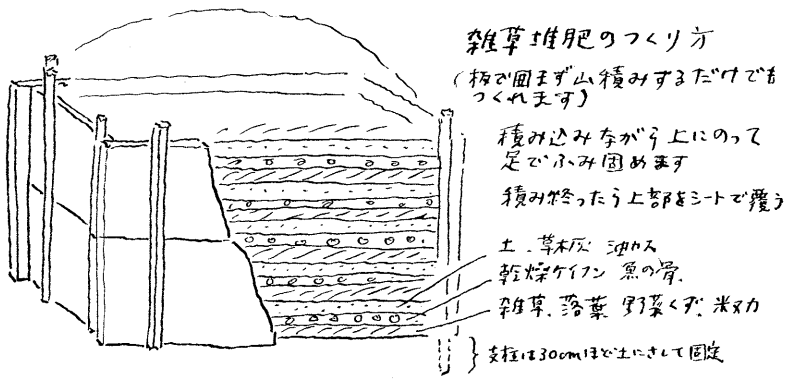 雑草堆肥のつくり方
(板で囲まず山積みするだけでも
つくれます)
積み込みながら上にのって
足でふみ固めます
積み終ったら上部をシートで覆う
土、草木灰 油カス
乾燥ケイフン 魚の骨、
雑草、落葉 野菜くず、米ヌカ
支柱は30cmほど土にさして固定